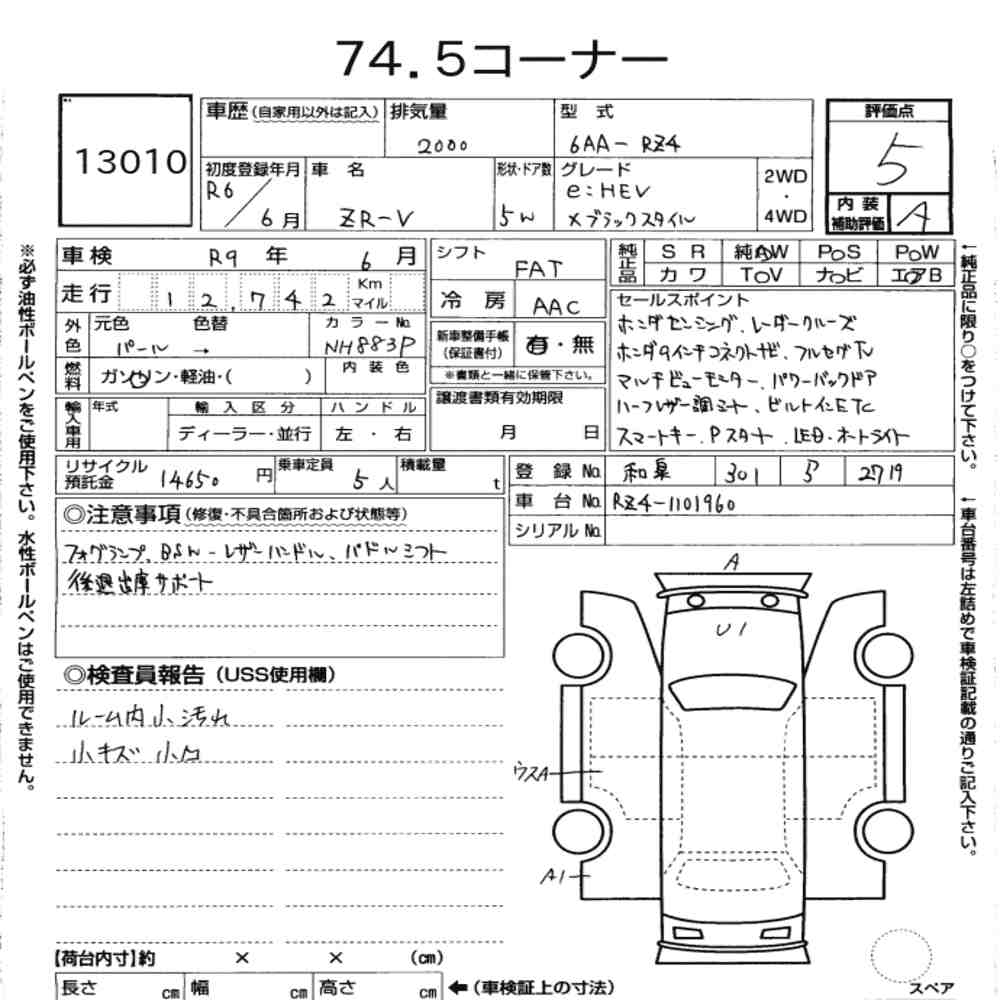 74.5コーナー
13010
車歴(自家用以外は記入) 排気量 型式
2000 6AA-RZ4
評価点
5
初度登録年月 車名 形状・ドア数 グレード
R6/6月 ZR-V 5W e:HEV
Xブラックスタイル
2WD
・
4WD
内装
補助評価 A
車検 R9年 6月
走行 12,742 Km
マイル
シフト FAT
冷房 AAC
純正品 SR 純AW PoS PoW
カワ ToV ナビ エアB
外色 元色 色替 カラーNo.
パール → NH883P
新車整備手帳
(保証書付) 有・無
※書類と一緒に保管下さい。
セールスポイント
ホンダセンシング、レーダークルーズ
ホンダ9インチコネクトナビ、フルセグTV
マルチビューモニター、パワーバックドア
ハーフレザー調シート、ビルトインETC
スマートキー、Pスタート、LED・オートライト
燃料 ガソリン・軽油・( ) 内装色
輸入車用 年式 輸入区分 ハンドル
ディーラー・並行 左・右
譲渡書類有効期限
月 日
リサイクル
預託金 14650円 乗車定員 5人 積載量 t
登録No. 和泉 301 2719
車台No. RZ4-1101960
シリアルNo.
◎注意事項(修復・不具合箇所および状態等)
フォグランプ、BSW-レザーハンドル、パドルシフト
後退出庫サポート
◎検査員報告(USS使用欄)
ルーム内小汚れ
小キズ 小凹
A
U1
ウスA
A1
スペア
【荷台内寸】約 × × (cm)
長さ cm 幅 cm 高さ cm ←(車検証上の寸法)
※必ず油性ボールペンをご使用下さい。水性ボールペンはご使用できません。
←純正品に限り○をつけて下さい。
←車台番号は左詰めで車検証記載の通りご記入下さい。